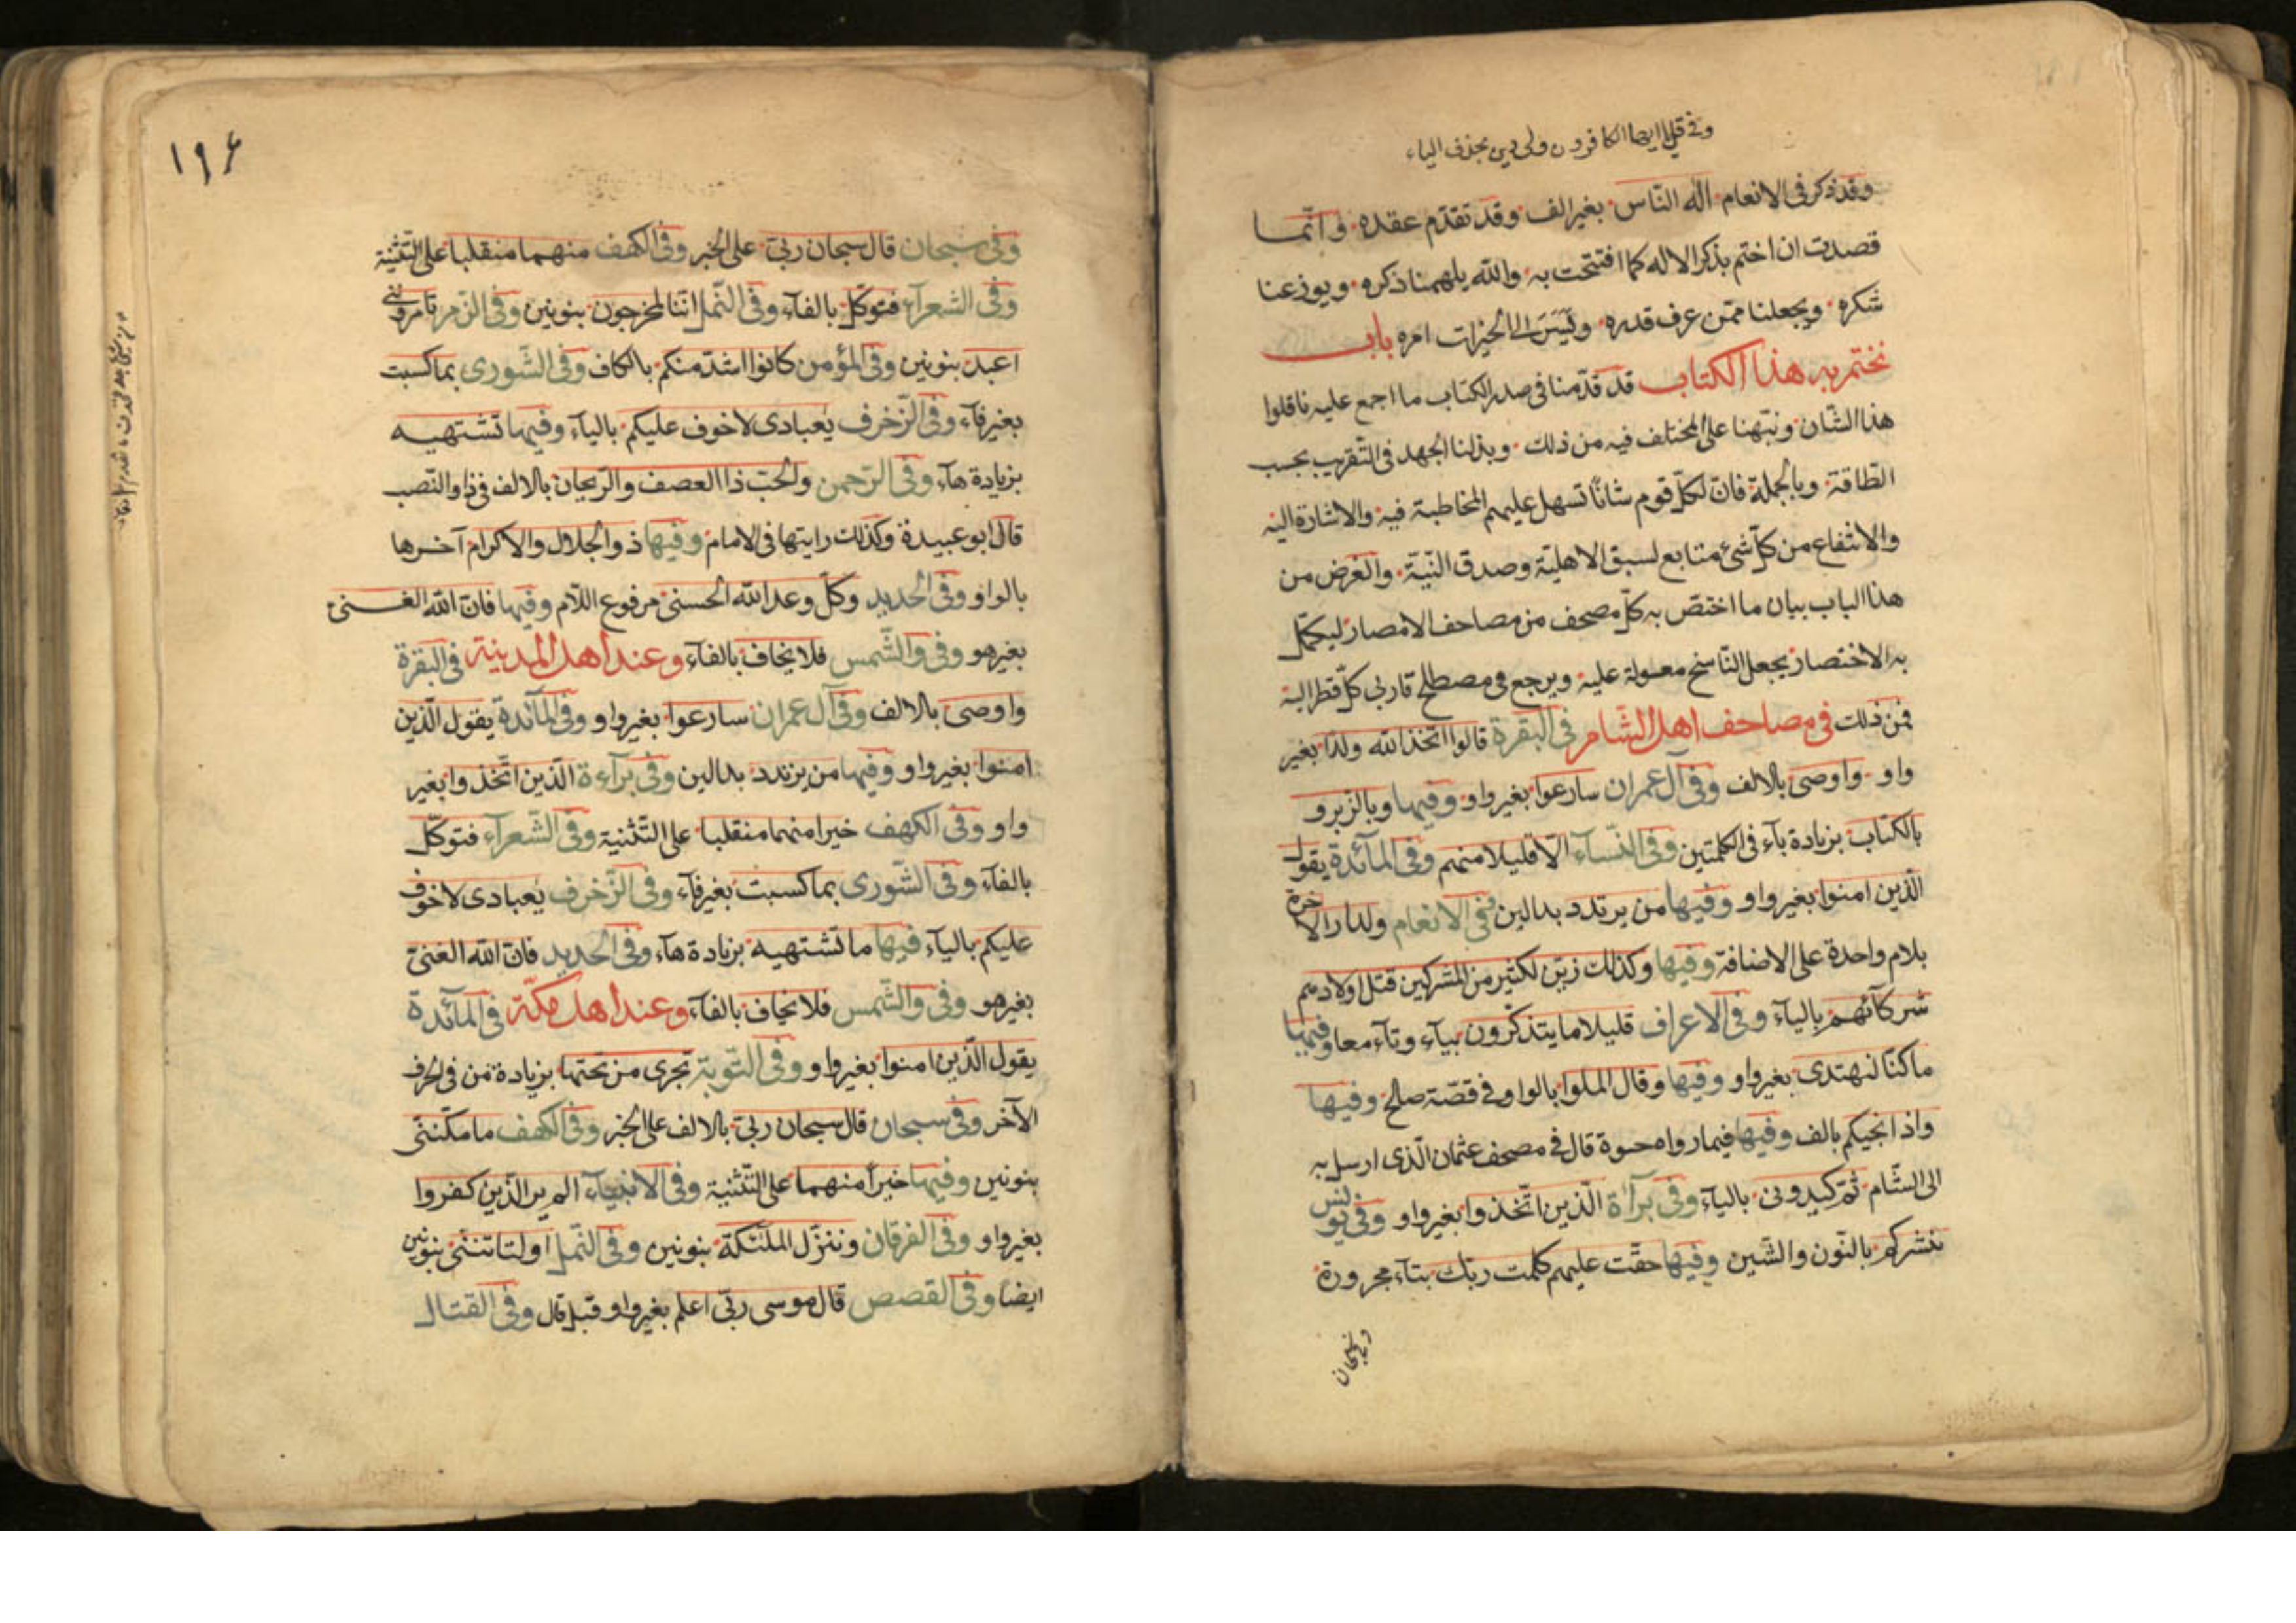 وفي قل يا ايها الكافرون ولى دين بحذف الياء
وقد ذكر فى الانعام اله النّاس بغير الف وقد تقدّم عقده وانّما
قصدت ان اختم بذكر الاله كما افتتحت به والله يلهمنا ذكره ويوزعنا
شكره ويجعلنا ممّن عرف قدره ويسّر الى الخيرات امره باب
نختم به هذا الكتاب قد قدّمنا فى صدر الكتاب ما اجمع عليه ناقلوا
هذا الشّان ونبّهنا على المختلف فيه من ذلك وبذلنا الجهد فى التّقريب بحسب
الطّاقة وبالجملة فانّ لكلّ قوم شانًا تسهل عليهم المخاطبة فيه والاشارة اليه
والانتفاع من كلّ شئ متابع لسبق الاهليّة وصدق النّيّة والغرض من
هذا الباب بيان ما اختصّ به كلّ مصحف من مصاحف الامصار ليكمّل
به الاختصار يجعل النّاسخ معوله عليه ويرجع فى مصطلح قارئ كلّ قطر اليه
فمن ذلك فى مصاحف اهل الشّام فى البقرة قالوا اتّخذ الله ولدًا بغير
واو واوصى بالالف وفى آل عمران سارعوا بغير واو وفيها وبالزبر و
بالكتاب بزيادة باء فى الكلمتين وفى النّسآء الّا قليلا منهم وفى المآئدة يقول
الّذين امنوا بغير واو وفيها من يرتدد بدالين ففى الانعام ولدار الاخرة
بلام واحدة على الاضافة وفيها وكذلك زيّن لكثير من المشركين قتل اولادهم
شركآئهم بالياء وفى الاعراف قليلا ما يتذكّرون بياء وتآء معا وفيها
ما كنّا لنهتدى بغير واو وفيها وقال الملوا بالواو فى قصّة صلح وفيها
واذ انجيكم بالف وفيها فيما رواه حيوة قال فى مصحف عثمان الّذى ارسل به
الى الشّام ثمّ كيدونى بالياء وفى برآءة الّذين اتّخذوا بغير واو وفى يونس
ننشركم بالنّون والشّين وفيها حقّت عليهم كلمت ربّك بتآء مجرورة
وفى سبحان
١٩٤
وفى سبحان قال سبحان ربّى على الخبر وفى الكهف منهما منقلبا على التّثنية
وفى الشعرآء فتوكّل بالفآء وفى النّمل انّنا لمخرجون بنونين وفى الزّمر تامروننى
اعبد بنونين وفى المؤمن كانوا اشدّ منكم بالكاف وفى الشّورى بما كسبت
بغير فآء وفى الزّخرف يعبادى لا خوف عليكم بالياء وفيها تشتهيه
بزيادة هآء وفى الرّحمن والحبّ ذا العصف والرّيحان بالالف فى ذا والنّصب
قال ابو عبيدة وكذلك رايتها فى الامام وفيها ذو الجلال والاكرام آخرها
بالواو وفى الحديد وكلّ وعد الله الحسنى مرفوع اللّام وفيها فانّ الله الغنى
بغير هو وفى والشّمس فلا يخاف بالفآء وعند اهل المدينة فى البقرة
واوصى بالالف وفى آل عمران سارعوا بغير واو وفى المآئدة يقول الّذين
امنوا بغير واو وفيها من يرتدد بدالين وفى برآءة الّذين اتّخذوا بغير
واو وفى الكهف خيرا منهما منقلبا على التّثنية وفى الشّعرآء فتوكّل
بالفآء وفى الشّورى بما كسبت بغير فآء وفى الزّخرف يعبادى لا خوف
عليكم بالياء فيها ما تشتهيه بزيادة هآء وفى الحديد فانّ الله الغنىّ
بغير هو وفى والشّمس فلا يخاف بالفآء وعند اهل مكّة فى المآئدة
يقول الّذين امنوا بغير واو وفى التّوبة تجرى من تحتها بزيادة من فى الحرف
الآخر وفى سبحان قال سبحان ربّى بالالف على الخبر وفى الكهف ما مكّننى
بنونين وفيها خيرًا منهما على التّثنية وفى الانبيآء الم ير الّذين كفروا
بغير واو وفى الفرقان وننزّل الملئكة بنونين وفى النّمل اولتاتننى بنونين
ايضا وفى القصص قال موسى ربّى اعلم بغير واو قبل قال وفى القتال